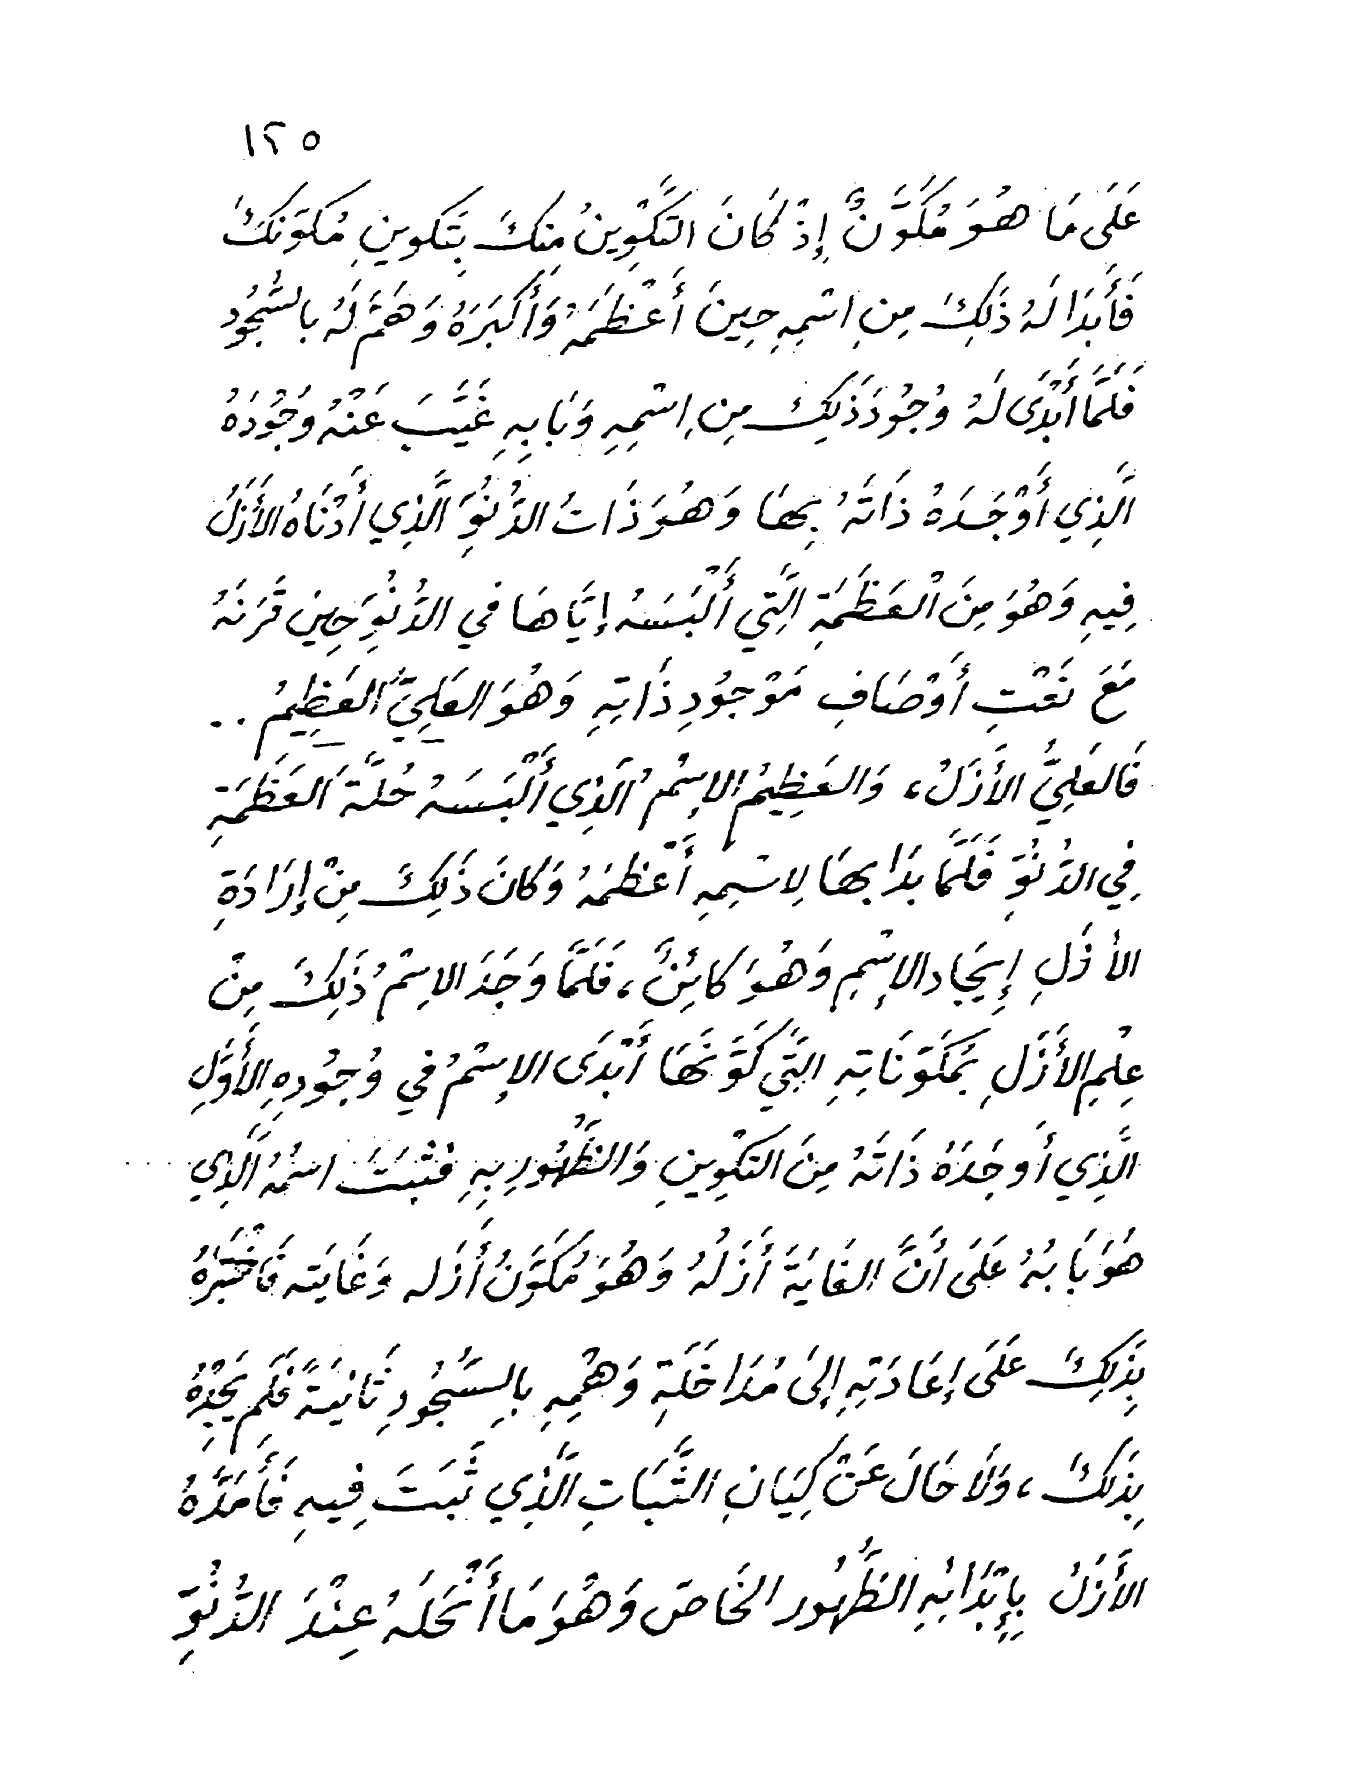 ١٢٥
عَلَى مَا هُوَ مُكَوَّنٌ إِذْ كَانَ التَّكْوِينُ مِنكَ بِتَكوِينِ مُكوَنكَ
فَأَبدَا لَهُ ذَلِكَ مِنِ اسْمِهِ حِينَ أَعْظَمَهُ وَأَكبَرَهُ وَهَمَّ لَهُ بالسُّجُودِ
فَلَمَّا أَبْدَى لَهُ وُجُودَ ذَلِكَ مِنِ اِسْمِهِ وَبَابِهِ غَيَّبَ عَنْهُ وُجُودَهُ
الَّذِي أَوْجَدَهُ ذَاتَهُ بِهَا وَهُوَ ذَاتُ الدُّنُوِّ الَّذِي أَدْنَاهُ الأَزَلُ
فِيهِ وَهُوَ مِنَ الْعَظَمَةِ الَّتِي أَلْبَسَهُ إيَّاهَا في الدُّنُوِّ حِينَ قَرَنَهُ
مَعَ نَعْتِ أَوْصَافِ مَوْجُودِ ذَاتِهِ وَهُوَ العَلِيُّ العَظِيمُ ..
فَالعَلِيُّ الأَزَلُ، وَالعَظِيمُ الاِسْمُ الَّذِي أَلْبَسَهُ حُلَّةَ العَظَمَةِ
فِي الدُّنُوِّ فَلَمَّا بَدَا بِهَا لِاسْمِهِ أَعْظَمَهُ وَكانَ ذَلِكَ مِنْ إِرَادَةِ
الأَزَلِ إِيجَادِ الاِسْمِ وَهُوَ كَائِنٌ، فَلَمَّا وَجَدَ الاِسْمُ ذَلِكَ مِنْ
عِلْمِ الأَزَلِ بِمُكَوَّنَاتِهِ الَّتِي كَوَّنَهَا أَبْدَى الاِسْمُ في وُجُودِهِ الأَوَّلِ
الَّذِي أَوجَدَهُ ذَاتَهُ مِنَ التَكْوِينِ وَالظُّهُورِ بِهِ فَثَبَتَ اسْمُهُ الَّذِي
هُوَ بَابُهُ عَلَى أَنَّ الغَايَةَ أَزَلُهُ وَهُوَ مُكَوِّنُ أَزَلِه وَغَايَتِه فَاخْتَبَرَهُ
بِذَلِكَ عَلَى إِعَادَتِهِ إِلَى مُدَاخَلَةِ وَهْمِهِ بِالسُّجُودِ ثَانِيَةً فَلَم يَجِدْهُ
بِذَلكَ، وَلَا حَالَ عَنْ كِيَانِ الثَّبَاتِ الَّذِي ثَبَتَ فِيهِ فَأَمَدَّهُ
الأَزَلُ بِإِبْدَائِهِ الظُّهُور الخَاصّ وَهُوَ مَا أَنْحَلَهُ عِنْدَ الدُّنُوِّ